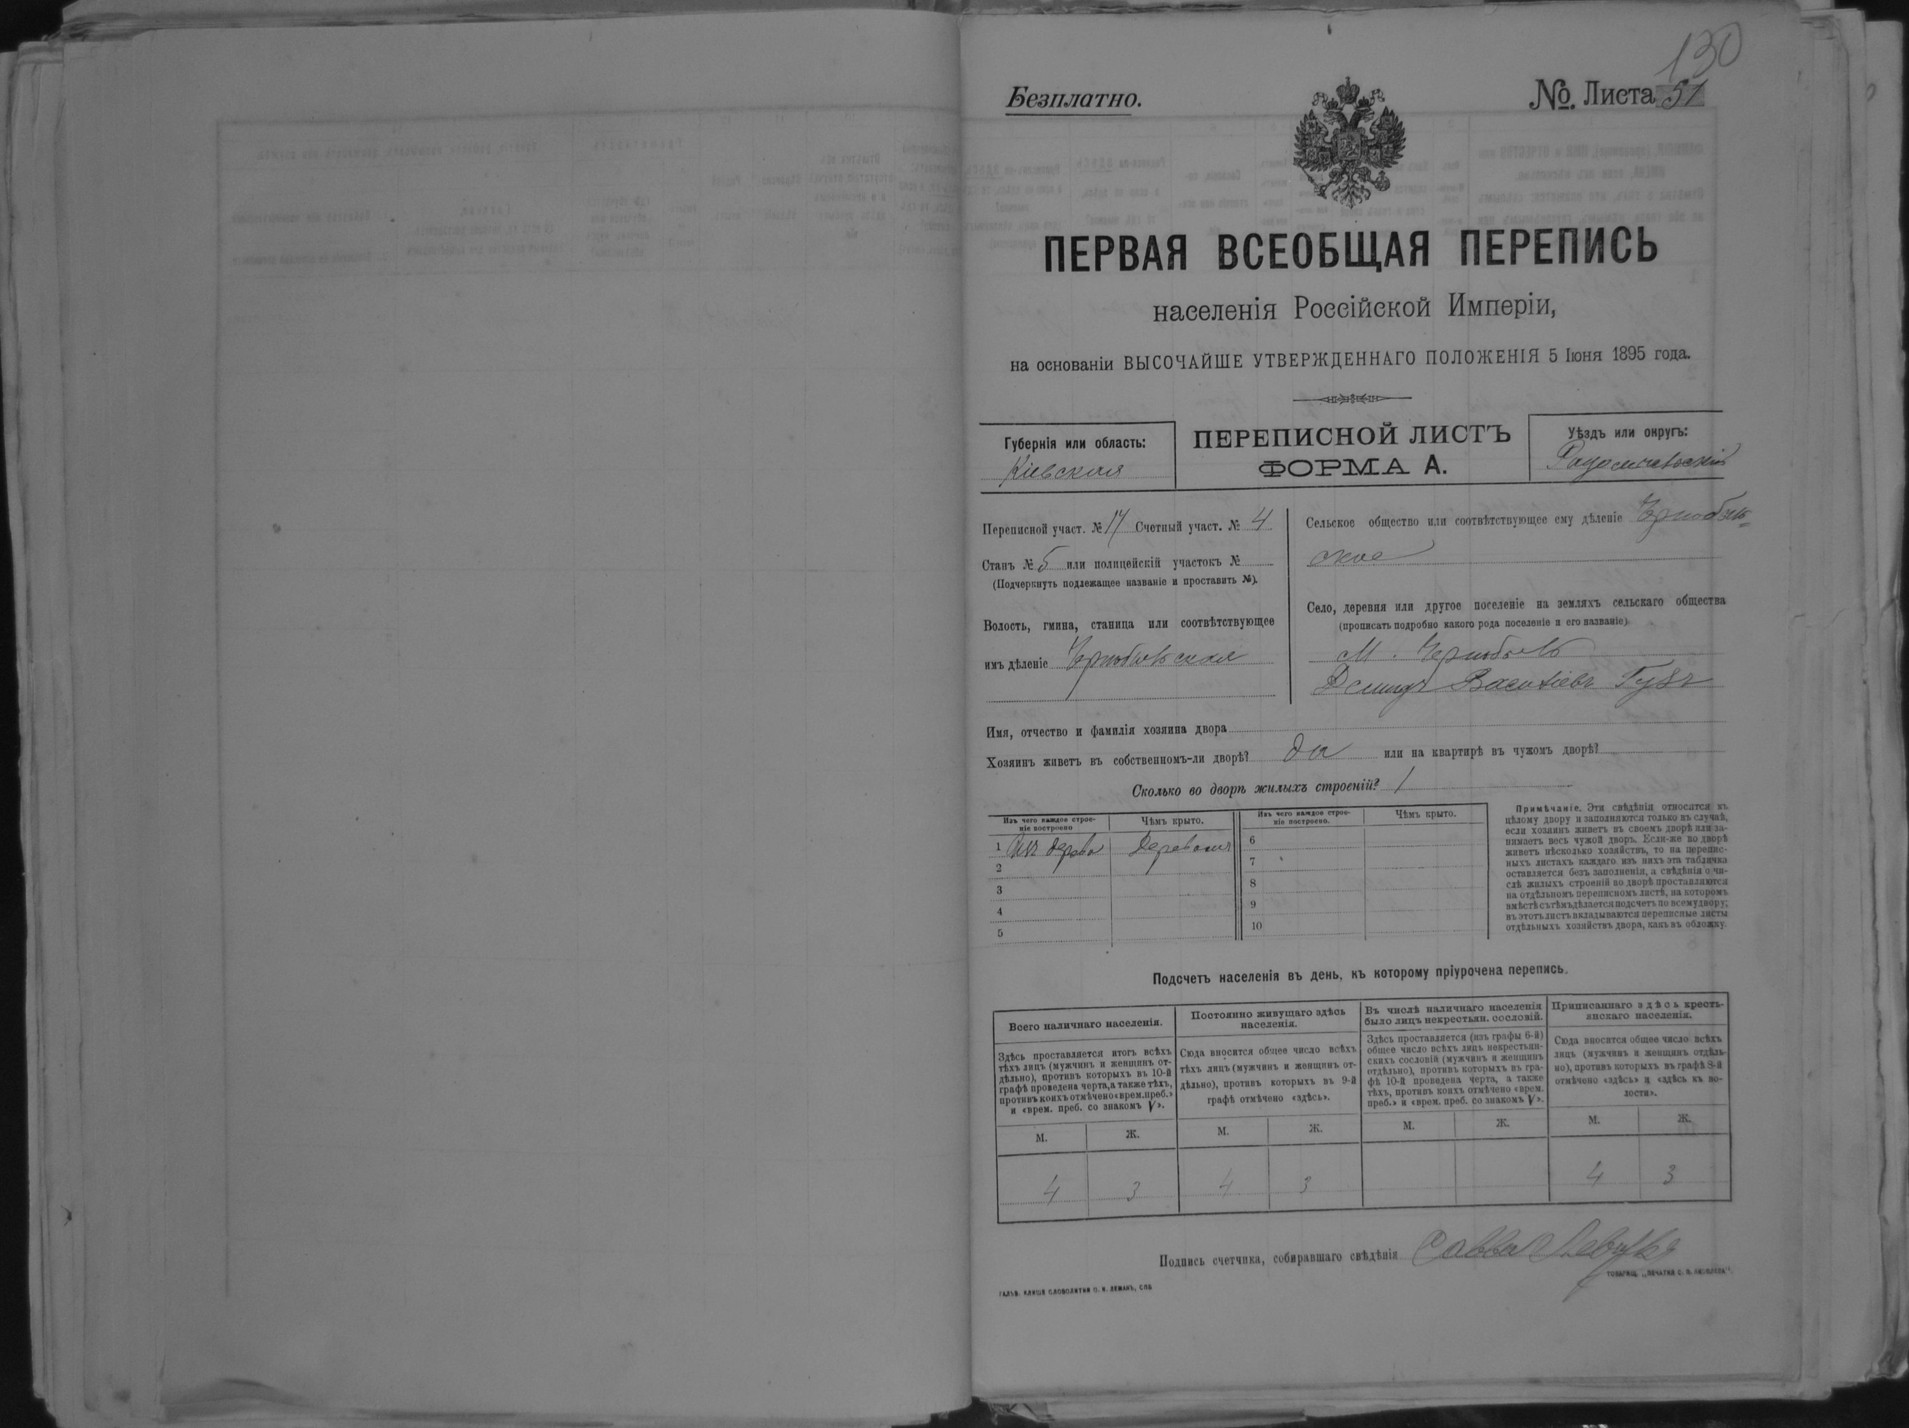 130
Безплатно.
№. Листа 51
ПЕРВАЯ ВСЕОБЩАЯ ПЕРЕПИСЬ
населенія Россійской Имперіи,
на основаніи ВЫСОЧАЙШЕ УТВЕРЖДЕННАГО ПОЛОЖЕНІЯ 5 Іюня 1895 года.
Губернія или область:
Кіевская
ПЕРЕПИСНОЙ ЛИСТЪ
ФОРМА А.
Уѣздъ или округъ:
Радомысльскій
Переписной участ. № 17 Счетный участ. № 4
Станъ № 5 или полицейскій участокъ №
(Подчеркнуть подлежащее названіе и проставить №).
Волость, гмина, станица или соотвѣтствующее
имъ дѣленіе Чернобыльская
Сельское общество или соотвѣтствующее ему дѣленіе Чернобыль=
ское
Село, деревня или другое поселеніе на земляхъ сельскаго общества
(прописать подробно какого рода поселеніе и его названіе)
М. Чернобыль
Демидъ Василіевъ
Имя, отчество и фамилія хозяина двора
Хозяинъ живетъ въ собственномъ-ли дворѣ? да или на квартирѣ въ чужомъ дворѣ?
Сколько во дворѣ жилыхъ строеній? 1
Изъ чего каждое строе-
ніе построено
Чѣмъ крыто.
Изъ чего каждое строе-
ніе построено.
Чѣмъ крыто.
1 Изъ дерева Деревомъ
2
3
4
5
6
7
8
9
10
Примѣчаніе. Эти свѣдѣнія относятся къ
цѣлому двору и заполняются только въ случаѣ,
если хозяинъ живетъ въ своемъ дворѣ или за-
нимаетъ весь чужой дворъ. Если-же во дворѣ
живетъ нѣсколько хозяйствъ, то на перепис-
ныхъ листахъ каждаго изъ нихъ эта табличка
оставляется безъ заполненія, а свѣдѣнія о чи-
слѣ жилыхъ строеній во дворѣ проставляются
на отдѣльномъ переписномъ листѣ, на которомъ
вмѣстѣ съ тѣмъ дѣлается подсчетъ по всему двору;
въ этотъ листъ вкладываются переписные листы
отдѣльныхъ хозяйствъ двора, какъ въ обложку.
Подсчетъ населенія въ день, къ которому пріурочена перепись.
Всего наличнаго населенія.
Здѣсь проставляется итогъ всѣхъ
тѣхъ лицъ (мужчинъ и женщинъ от-
дѣльно), противъ которыхъ въ 10-й
графѣ проведена черта, а также тѣхъ,
противъ коихъ отмѣчено «врем. преб.»
и «врем. преб. со знакомъ V».
Постоянно живущаго здѣсь
населенія.
Сюда вносится общее число всѣхъ
тѣхъ лицъ (мужчинъ и женщинъ от-
дѣльно), противъ которыхъ въ 9-й
графѣ отмѣчено «здѣсь».
Въ числѣ наличнаго населенія
было лицъ некрестьян. сословій.
Здѣсь проставляется (изъ графы 6-й)
общее число всѣхъ лицъ некрестьян-
скихъ сословій (мужчинъ и женщинъ
отдѣльно), противъ которыхъ въ гра-
фѣ 10-й проведена черта, а также
тѣхъ, противъ коихъ отмѣчено «врем.
преб.» и «врем. преб. со знакомъ V».
Приписаннаго здѣсь кресть-
янскаго населенія.
Сюда вносится общее число всѣхъ
лицъ (мужчинъ и женщинъ отдѣль-
но), противъ которыхъ въ графѣ 8-й
отмѣчено «здѣсь» и «здѣсь къ во-
лости».
М. Ж. М. Ж. М. Ж. М. Ж.
4 3 4 3 4 3
Подпись счетчика, собиравшаго свѣдѣнія Савва
ГАЛЬВ. КЛИШЕ СЛОВОЛИТНИ О. И. ЛЕМАНЪ, СПБ
ТОВАРИЩ. „ПЕЧАТНЯ С. П. ЯКОВЛЕВА".